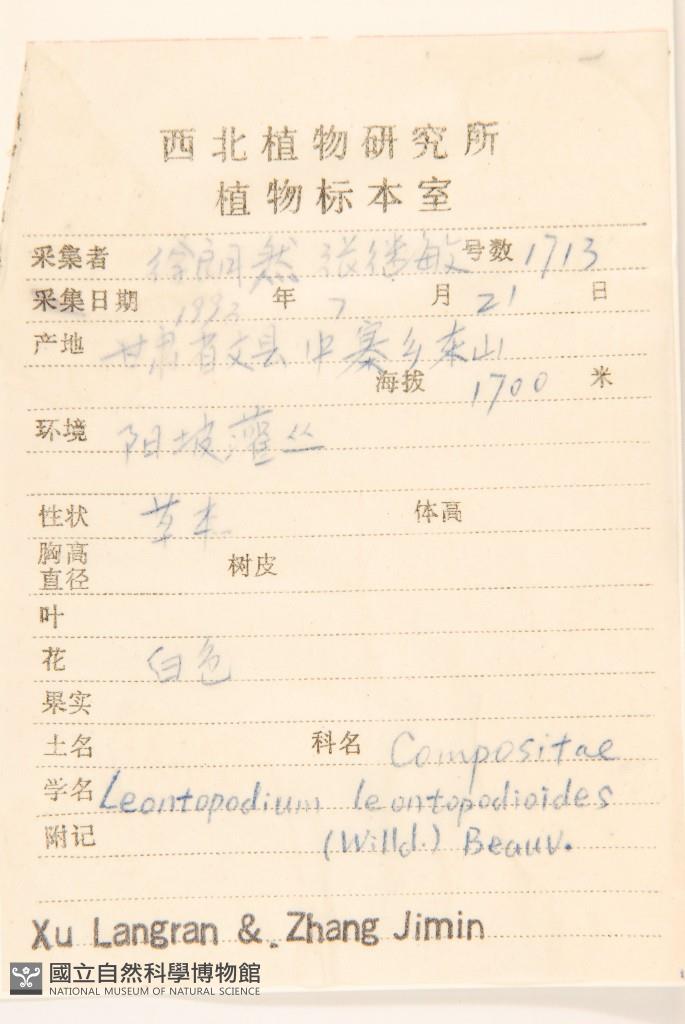 西北植物研究所
植物标本室
采集者 徐朗然 张继敏 号数 1713
采集日期 1992 年 7 月 21 日
产地 甘肃省文县中寨乡东山
海拔 1700 米
环境 阳坡灌丛
性状 草本 体高
胸高直径 树皮
叶
花 白色
果实
土名 科名 Compositae
学名 Leontopodium leontopodioides
附记 (Willd.) Beauv.
Xu Langran & Zhang Jimin
國立自然科學博物館
NATIONAL MUSEUM OF NATURAL SCIENCE